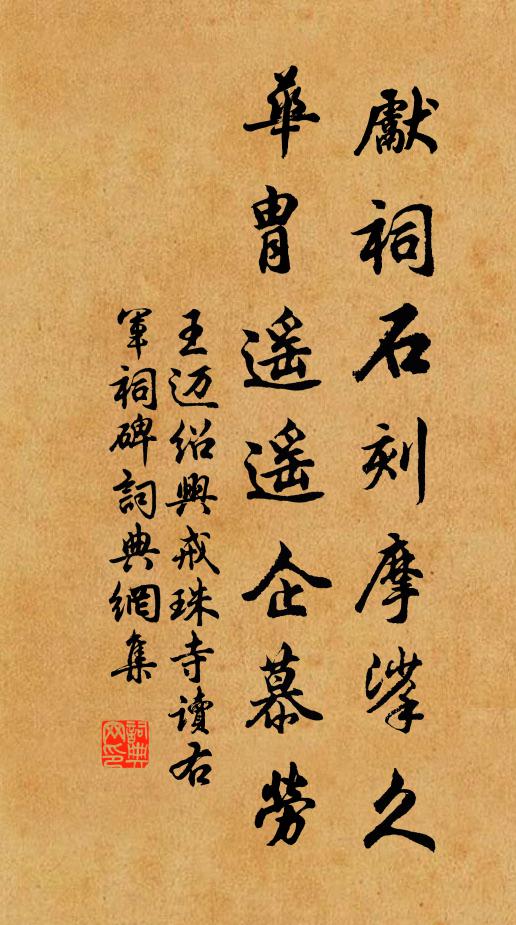 獻祠石刻摩挲久
華胄遥遥企慕勞
王迈绍興戒珠寺讀右
軍祠碑詞典網集
詞典網印